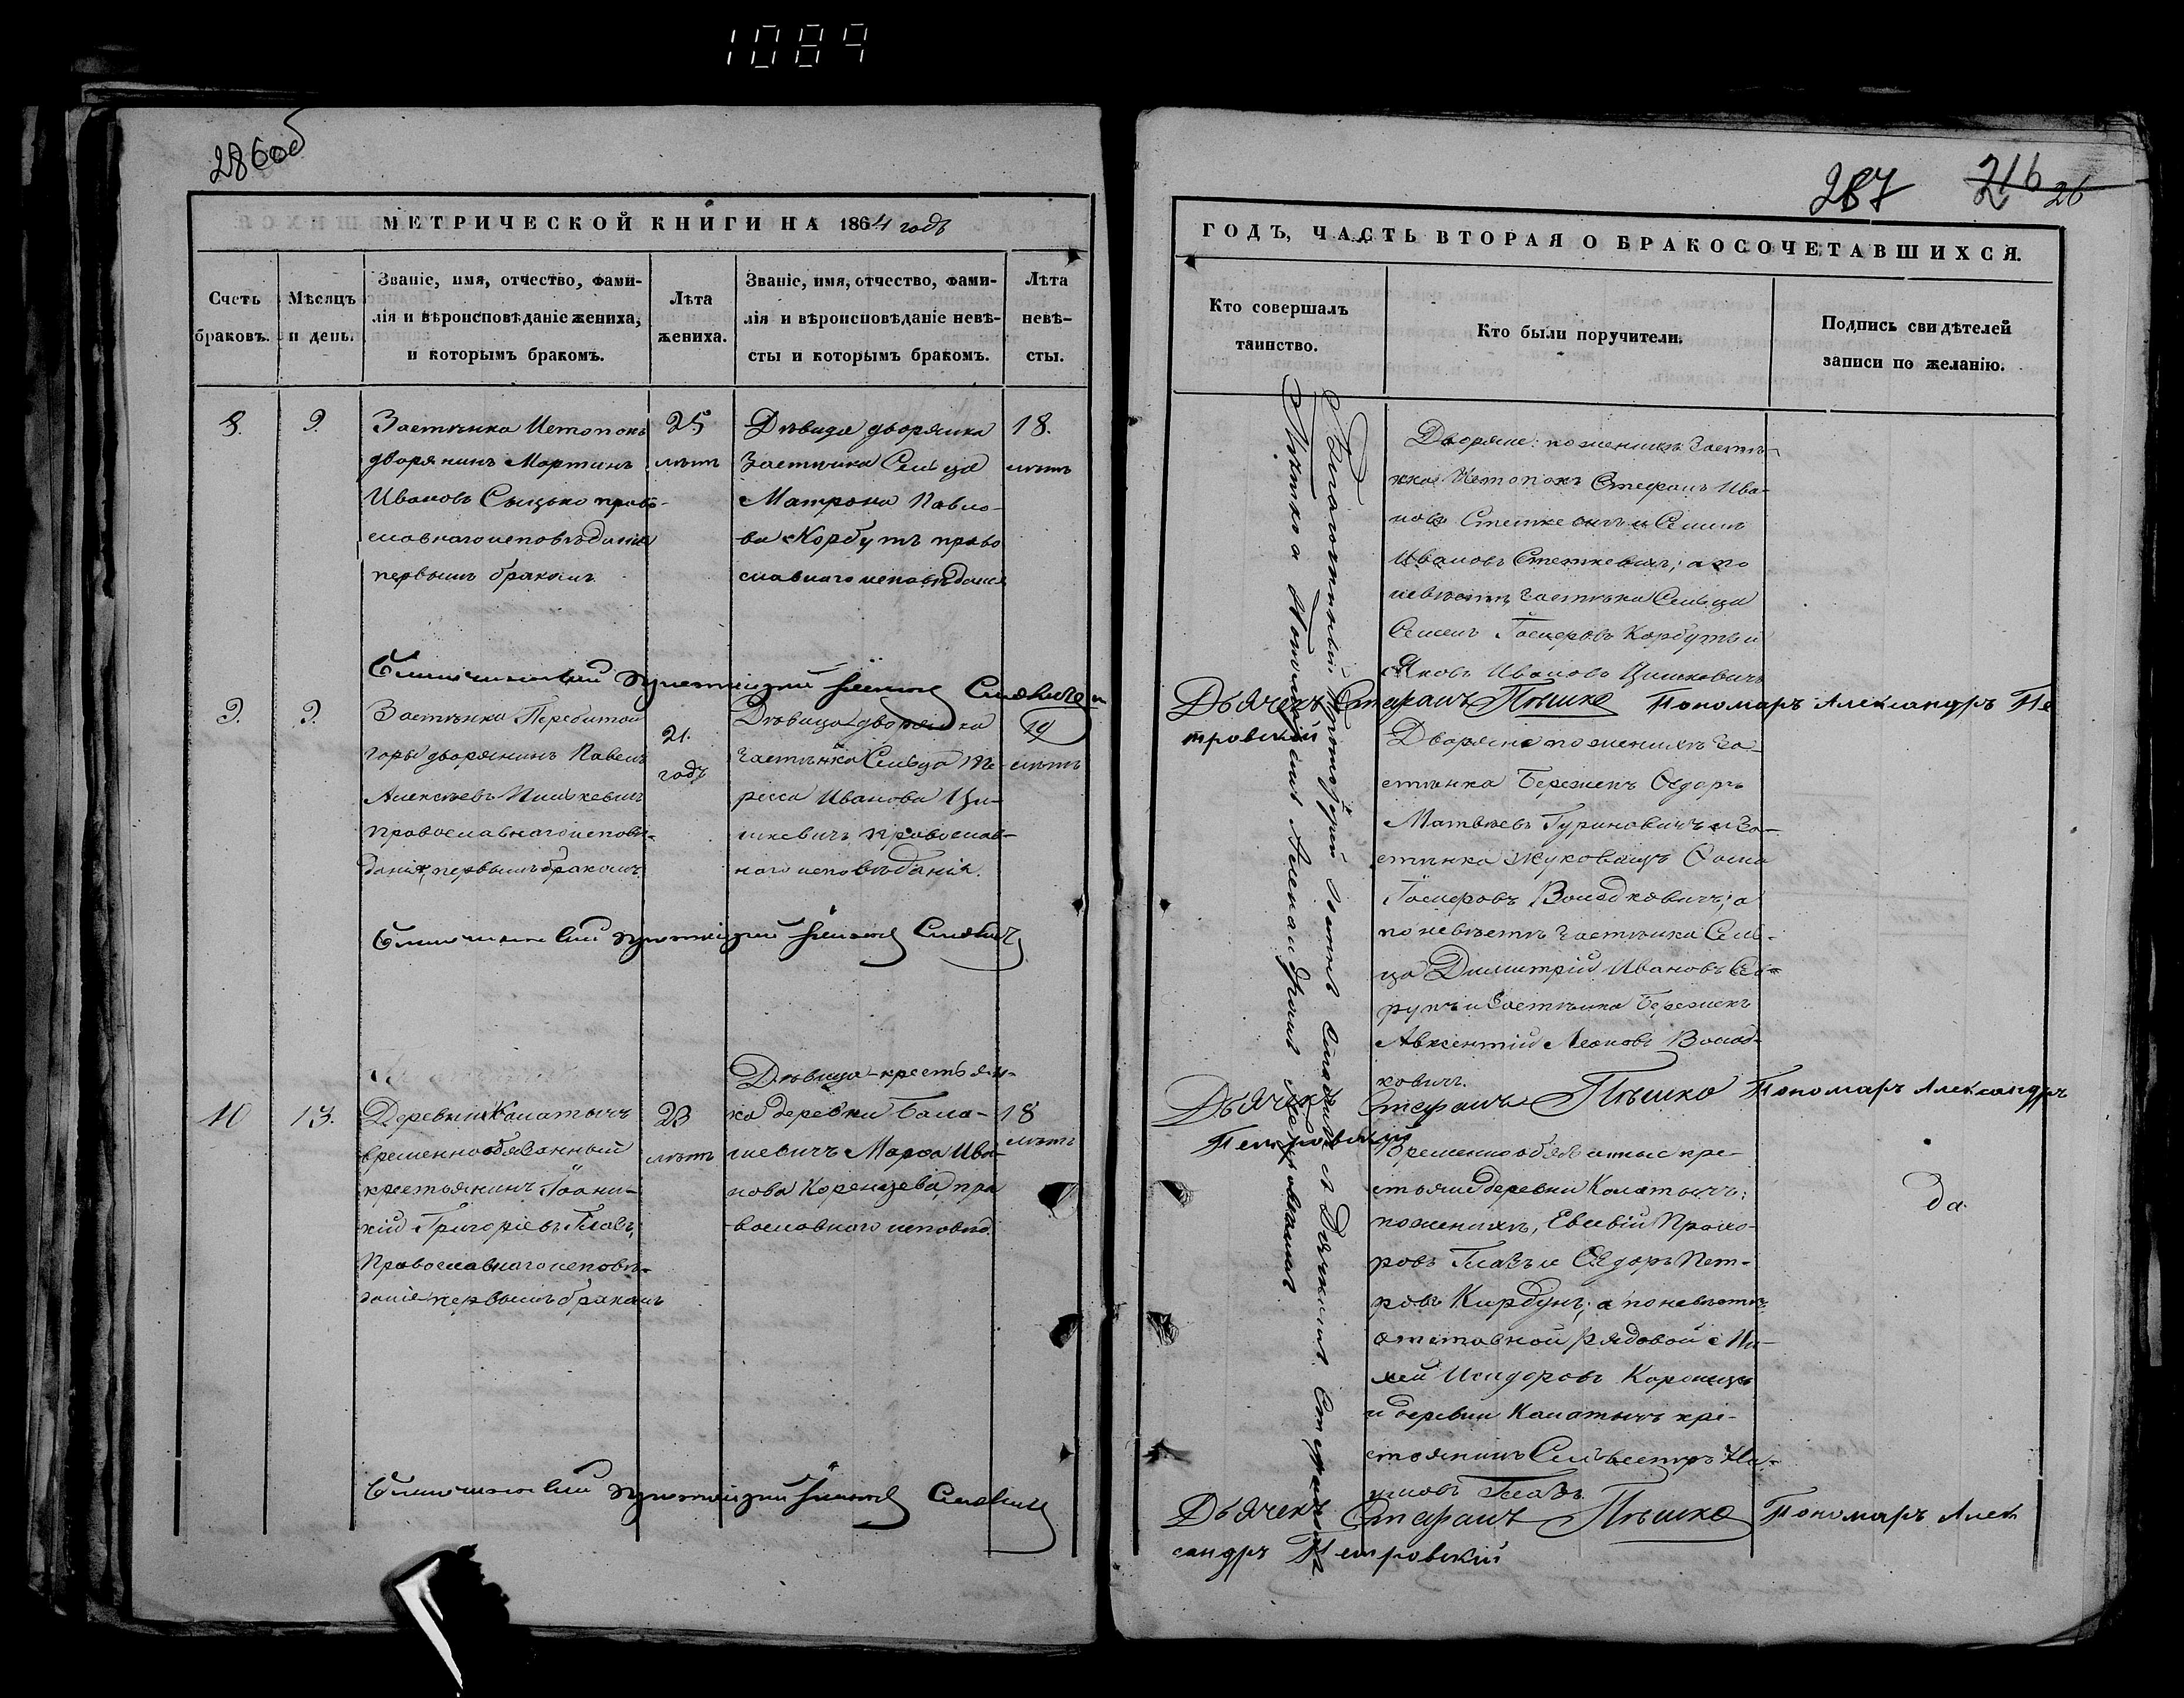 1089
286об
МЕТРИЧЕСКОЙ КНИГИ НА 1864 годъ
Счетъ браковъ.
Мѣсяцъ и день.
Званіе, имя, отчество, фами-
лія и вѣроисповѣданіе жениха,
и которымъ бракомъ.
Лѣта жениха.
Званіе, имя, отчество, фами-
лія и вѣроисповѣданіе невѣ-
сты и которымъ бракомъ.
Лѣта невѣ-
сты.
8.
9.
Застѣнка Истопокъ
дворянинъ Мартинъ
Ивановъ Сыцько право-
славнаго исповѣданія
первымъ бракомъ
25
лѣтъ
Дѣвица дворянка
застѣнка Сельца
Матрона Павло-
ва Корбутъ право
славнаго исповѣданія
18.
лѣтъ
9.
9.
Застѣнка Перебитой
горы дворянинъ Павелъ
Алексѣевъ
православнаго исповѣ-
данія, первымъ бракомъ
21.
годъ
Дѣвица дворянка
застѣнка Сельца Те-
ресса Иванова Ци-
шкевичъ православ-
наго исповѣданія.
19
лѣтъ
10
13.
Деревни Калатычъ
временнообязанный
крестьянинъ Іоани-
кій Григоріевъ Глазъ,
Православнаго исповѣ-
данія первымъ бракомъ
23
лѣтъ
Дѣвица крестьян-
ка деревни Бала-
шевичъ Марѳа Ива-
нова Коренцева, пра
вославнаго исповѣд.
18
лѣтъ
287
216
26
ГОДЪ, ЧАСТЬ ВТОРАЯ О БРАКОСОЧЕТАВШИХСЯ.
Кто совершалъ
таинство.
Кто были поручители.
Подпись свидѣтелей
записи по желанію.
Дворяне: по женихѣ застѣ-
нка Истопокъ Стефанъ Ива-
новъ Стеткевичъ и Семенъ
Ивановъ Стеткевичъ; а по
невѣстѣ застѣнка Сельца
Семенъ Гасперовъ Корбутъ и
Яковъ Ивановъ Цишковичъ
Дьячекъ Стефанъ Пѣшко Пономаръ Александръ Пе
тровскій
Дворяне по женихѣ за-
стѣнка Бережекъ Ѳедоръ
Матвѣевъ Гуриновичъ и за-
стѣнка Жуковецъ Ѳома
Гасперовъ Володковичъ; а
по невѣстѣ застѣнка Сель-
ца Димитрій Ивановъ
и застѣнка Бережекъ
Авксентій Леоновъ Волод-
ковичъ.
Дьячекъ Стефанъ Пѣшко Пономаръ Александръ
Петровскій
Временнообязанные кре-
стьяне деревни Калатычъ:
по женихѣ, Евсевій Прохо-
ровъ Глазъ и Ѳедоръ Пет-
ровъ Кирбунъ; а по невѣстѣ
отставной рядовой
Исидоровъ
и деревни Калатычъ кре-
стьянинъ Сильвестръ На-
умовъ Глазъ.
да
Дьячекъ Стефанъ Пѣшко Пономаръ Алек
сандръ Петровскій